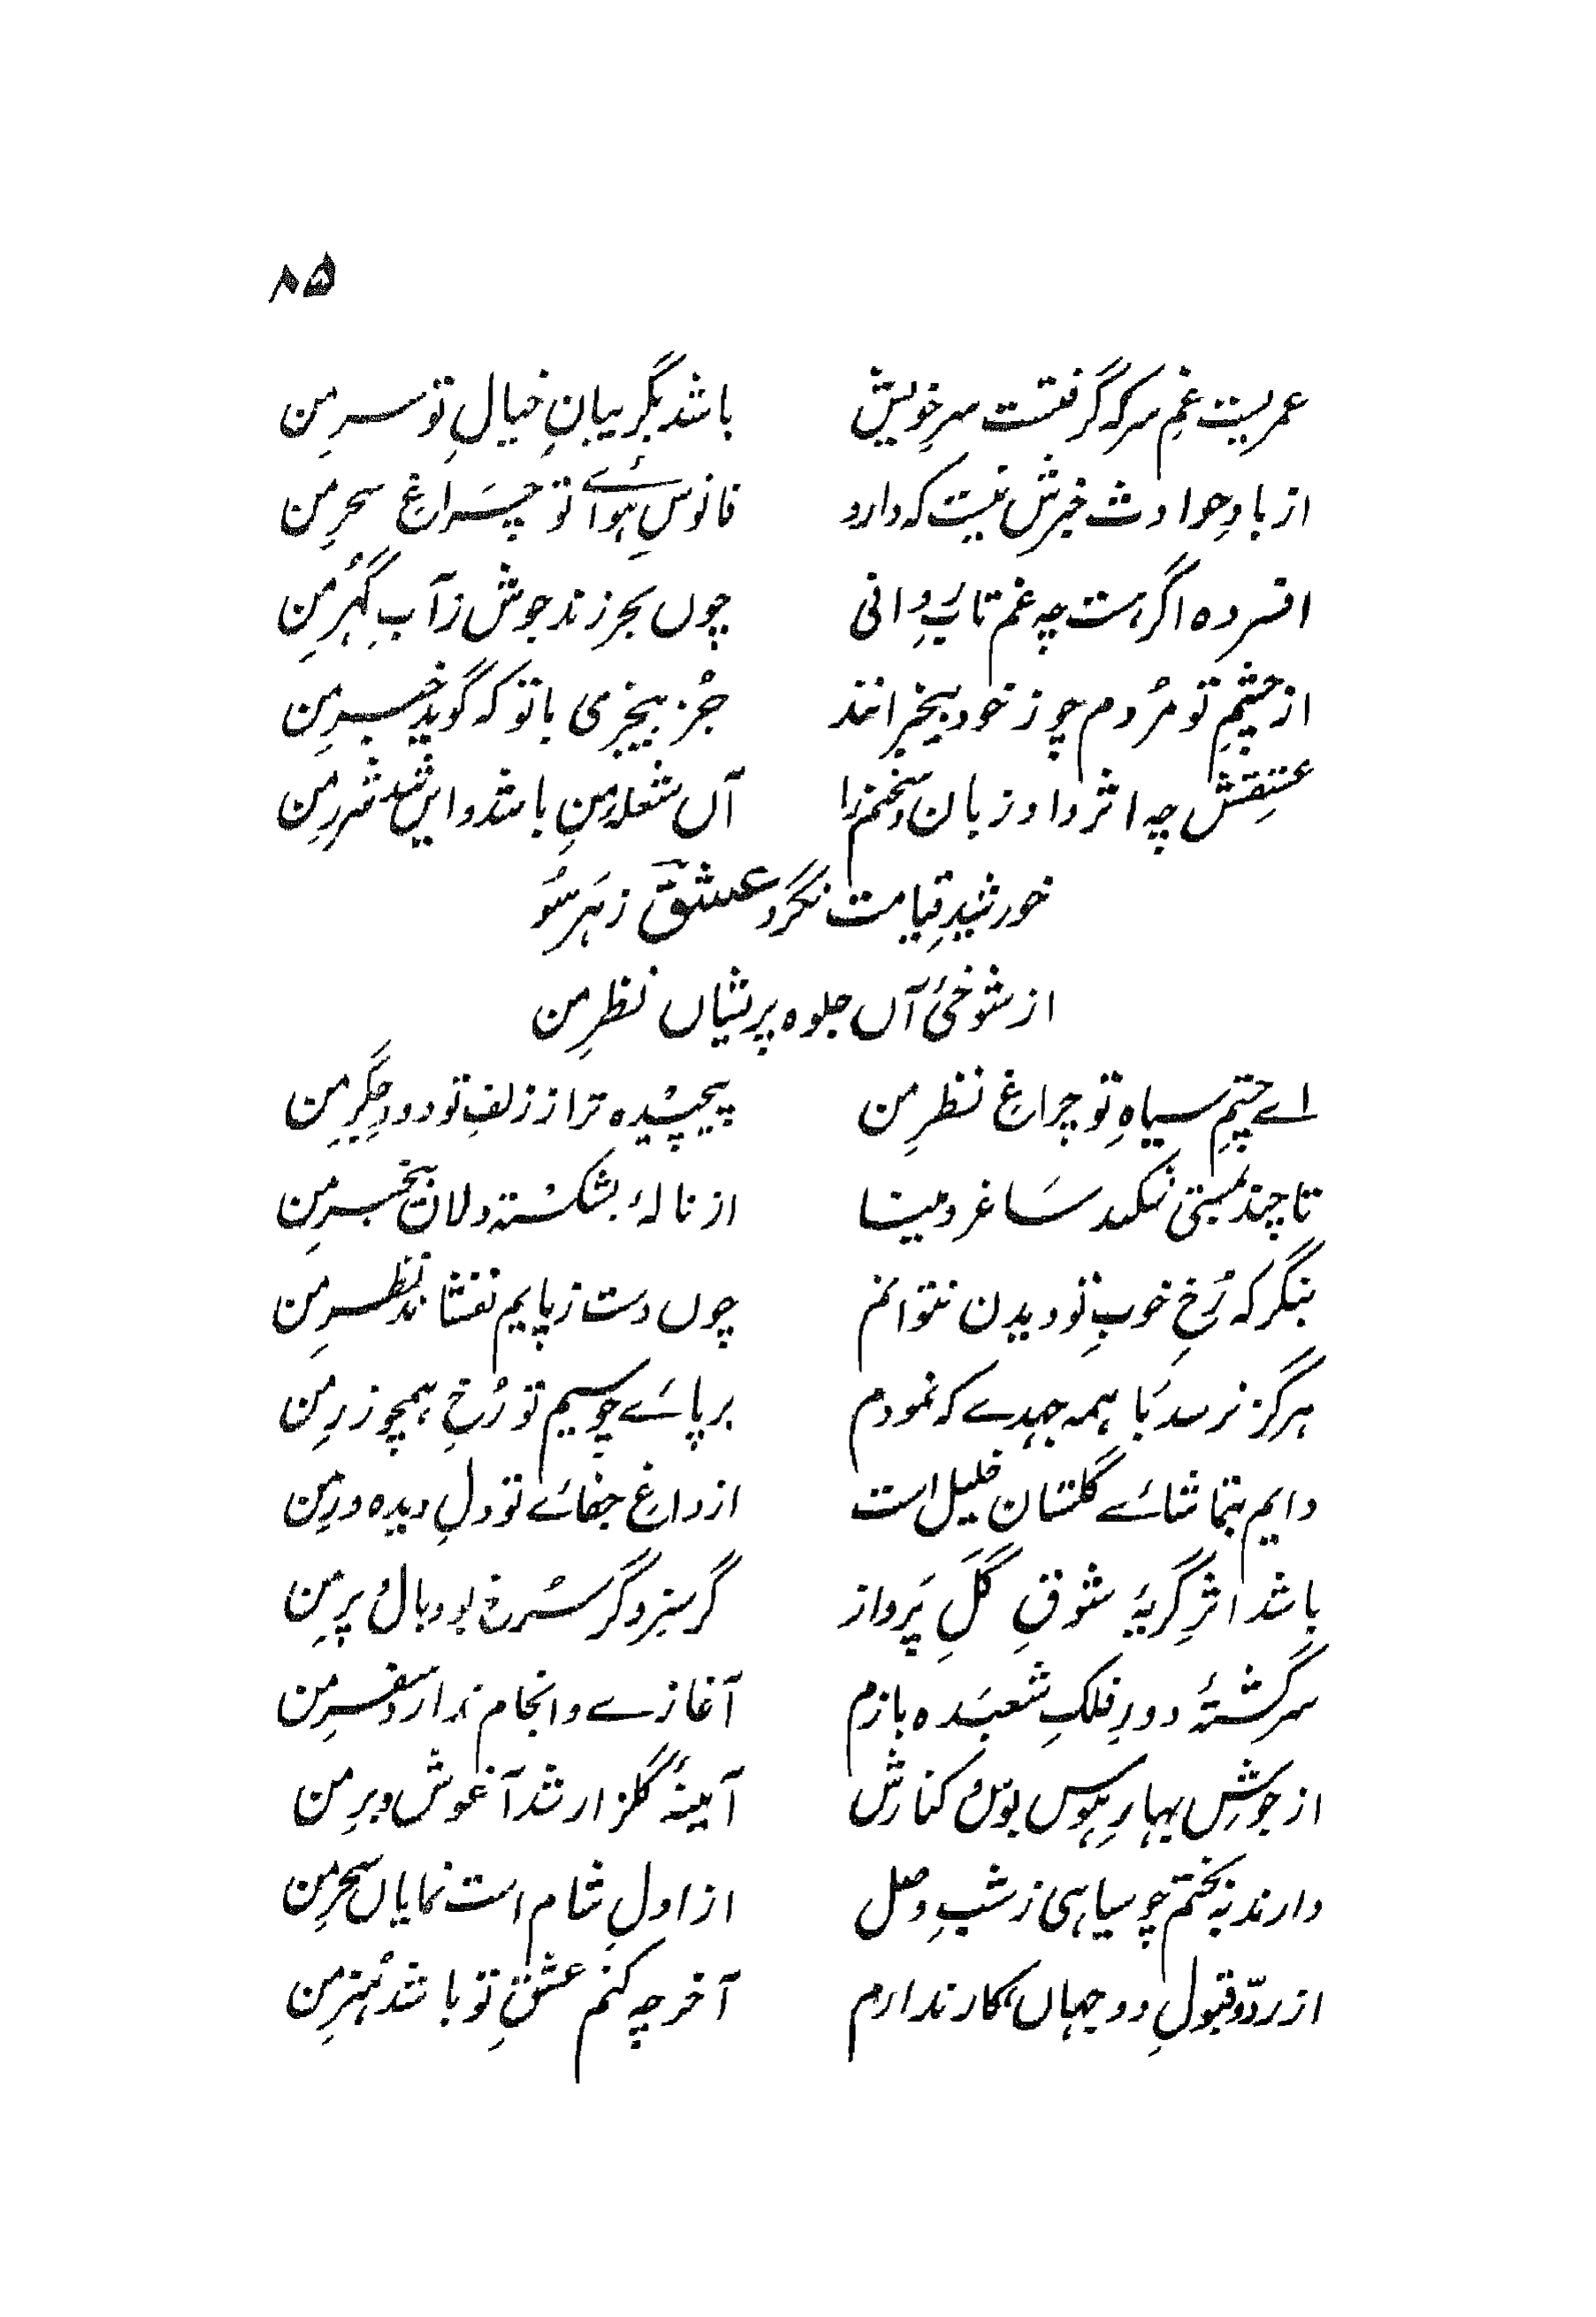 ۸۵
عمریست غمِ سرکہ گرفتست سرِ خویش باشد بگریبانِ خیالِ تو سرِ من
از بادِ حوادث خبرش نیست کہ دارد فانوسِ ہوائے تو چراغِ سحرِ من
افسردہ اگر ہست چہ غم تابِ روانی چوں بحر زند جوش ز آبِ گہرِ من
از چشمِ تو مردم چو ز خود بیخبر انند جُز بیخبری باتو کہ گوید خبرِ من
عشقش چہ اثر داد زبان و سخنم را آں شعلۂ من باشد و ایں شد شررِ من
خورشیدِ قیامت نگرد عشقؔ ز ہر سُو
از شوخیٔ آں جلوہ پریشاں نظرِ من
اے چشمِ سیاہِ تو چراغِ نظرِ من پیچیدہ ترا از زلفِ تو دودِ جگرِ من
تا چند بمستی شکند ساغر و مینا از نالۂ بشکستہ دلان بیخبرِ من
بنگر کہ رُخِ خوبِ تو دیدن نتوانم چوں دست ز پایم نفشاند نظرِ من
ہرگز نرسد با ہمہ جہدے کہ نمودم بر پائے چو سیمِ تو رُخِ ہمچو زرِ من
دایم بتماشائے گلستان خلیل است از داغِ جفائے تو دلِ دیدہ ورِ من
باشد اثرِ گریۂ شوقِ گلِ پرواز گر سبز و گر سُرخ بود بال و پرِ من
سرگشتۂ دورِ فلکِ شعبدہ بازم آغازے و انجام ندارد سفرِ من
از جوشِ بہارِ ہوسِ بوس و کنارش آئینۂ گلزار شد آغوش و برِ من
دارند بہ بختم چو سیاہی ز شبِ وصل از اولِ شام است نمایاں سحرِ من
از ردّ و قبولِ دو جہاں کار ندارم آخر چہ کنم عشقِ تو باشد ہنرِ من